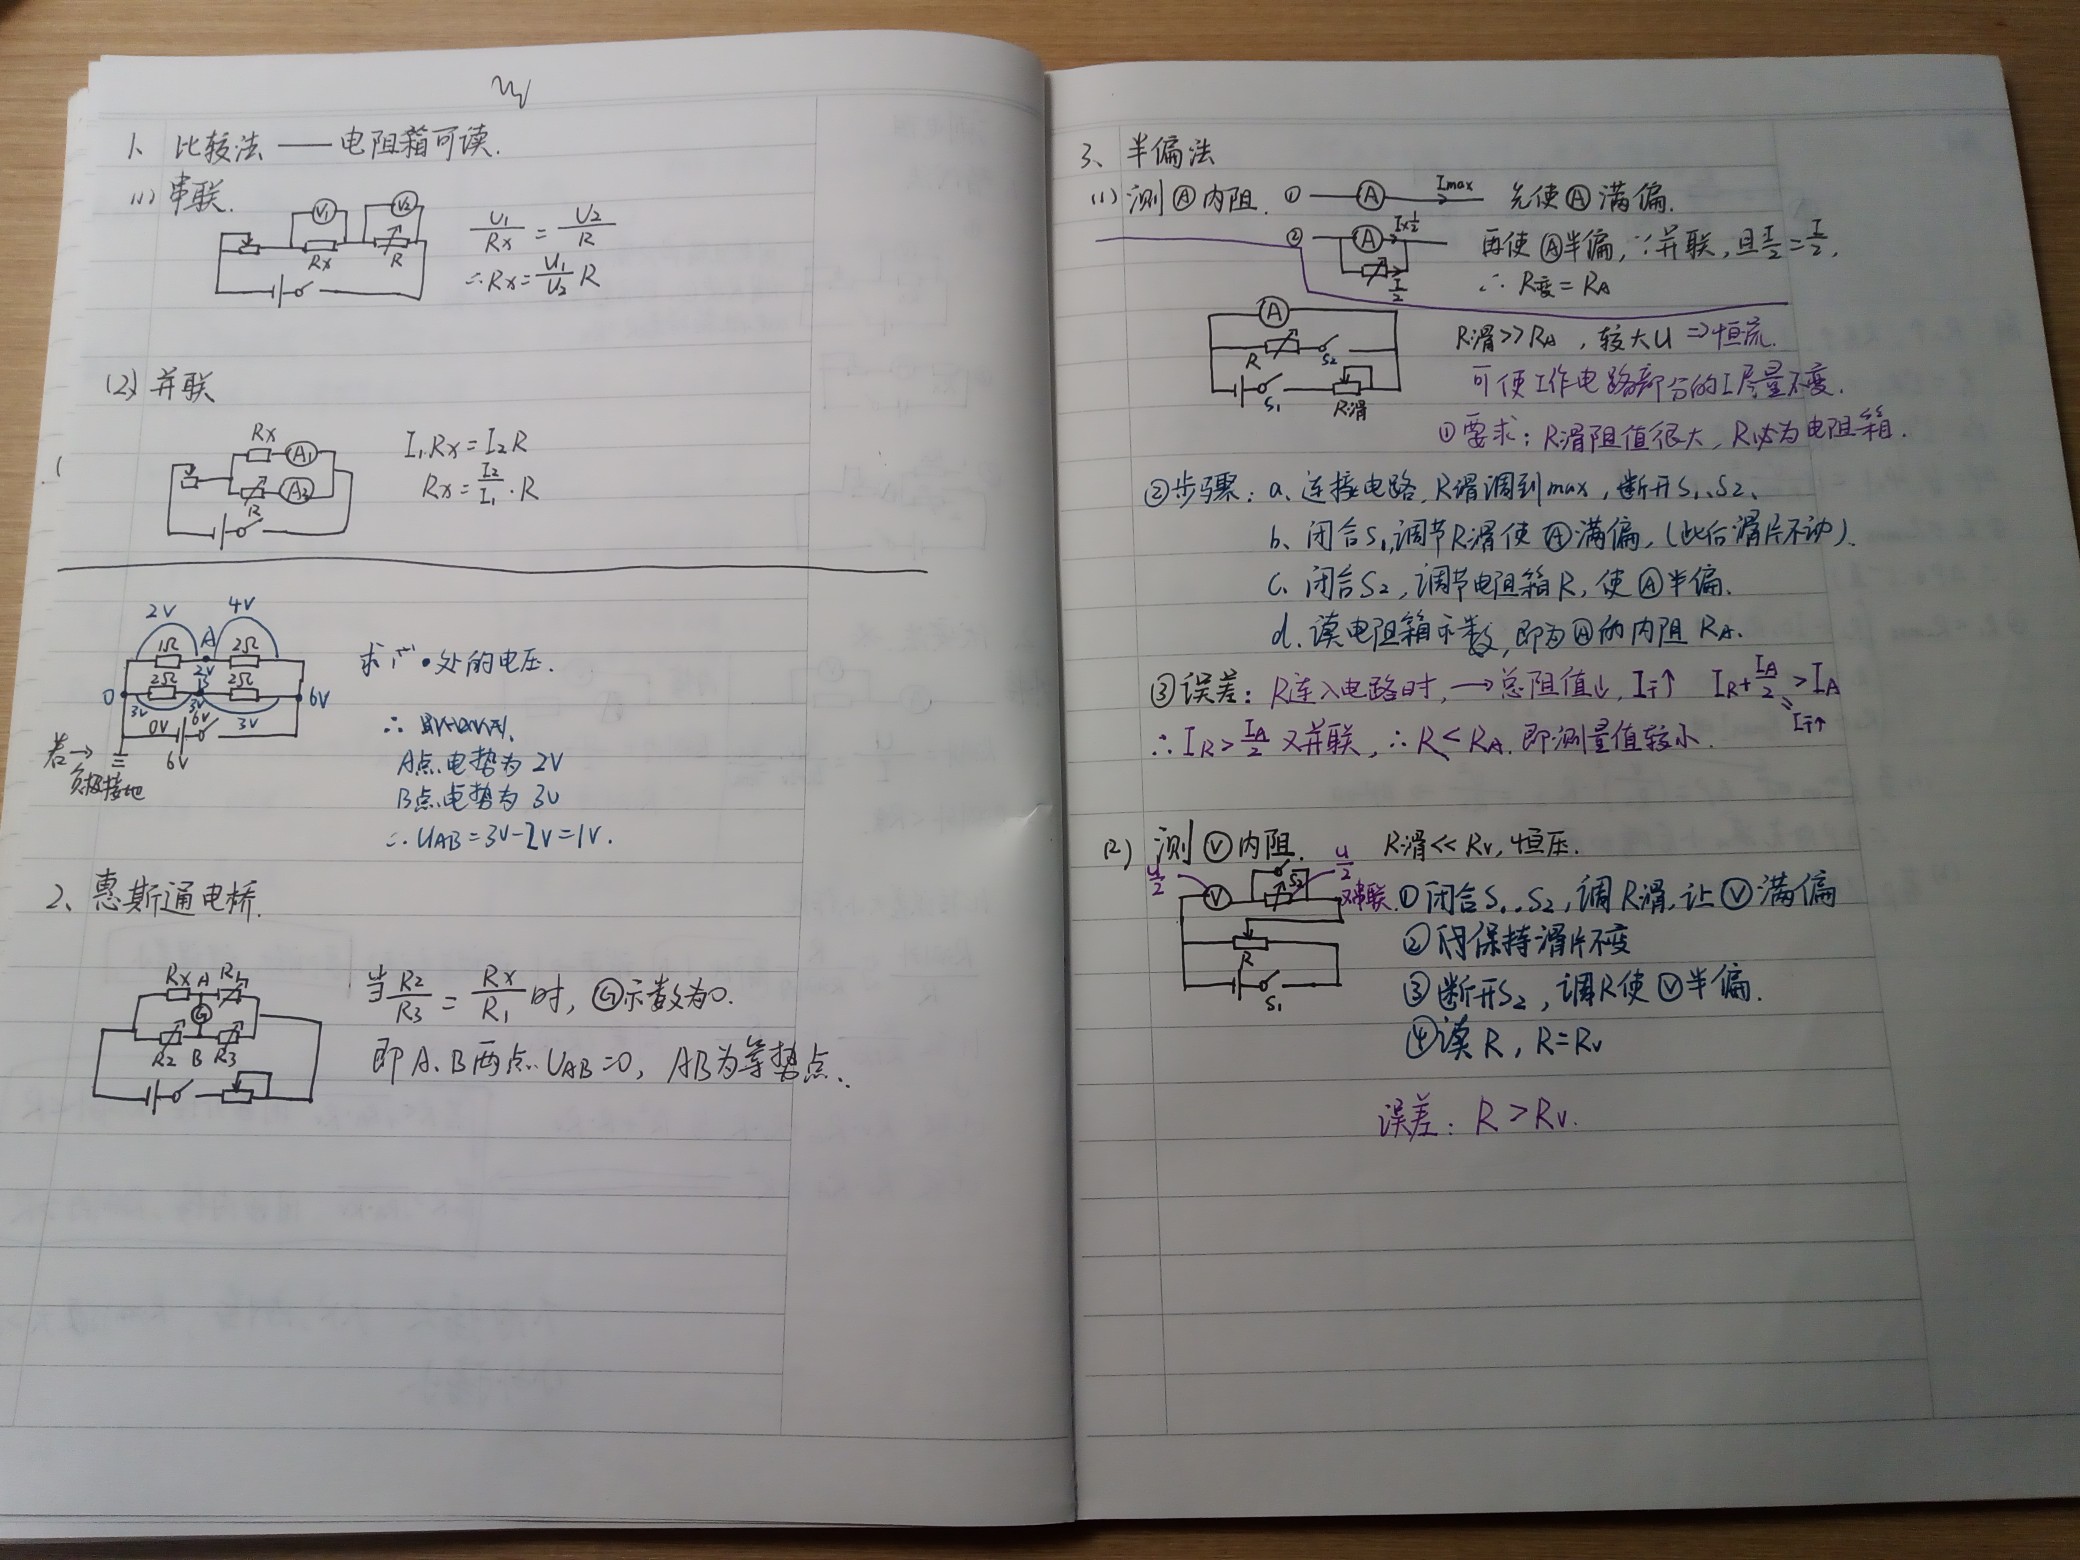 1、比较法——电阻箱可读.
(1)串联.
V1 V2
Rx R
U1/Rx = U2/R
∴Rx=U1/U2 R
(2)并联
Rx A1
R A2
I1Rx=I2R
Rx=I2/I1·R
2V 4V
1Ω A 2Ω
2V
0 2Ω B 2Ω 6V
3V 3V 3V
0V 6V
6V
若→负极接地
处的电压.
A点电势为2V
B点电势为3V
∴UAB=3V-2V=1V.
2、惠斯通电桥.
Rx A R1
G
R2 B R3
当R2/R3=Rx/R1时,Ⓖ示数为0.
即A、B两点UAB=0,AB为等势点.
3、半偏法
(1)测Ⓐ内阻.①A Imax 先使Ⓐ满偏.
②A I×1/2 再使Ⓐ半偏,∵并联,且I/2=I/2,
I/2 ∴R变=RA
A
R S2
S1 R滑
R滑>>RA,较大U⇒恒流.
可使工作电路部分的I尽量不变.
①要求:R滑阻值很大,R必为电阻箱.
②步骤:a、连接电路,R滑调到max,断开S1、S2、
b、闭合S1,调节R滑使Ⓐ满偏,(此后滑片不动).
c、闭合S2,调节电阻箱R,使Ⓐ半偏.
d.读电阻箱示数,即为Ⓐ的内阻RA.
③误差:R连入电路时,→总阻值↓,I干↑ IR+IA/2>IA
I干↑
∴IR>IA/2又并联,∴R<RA.即测量值较小.
(2)测Ⓥ内阻. R滑<<RV,恒压.
U/2 V S2 U/2 又串联.
R
S1
①闭合S1、S2,调R滑,让Ⓥ满偏
②保持滑片不变
③断开S2,调R使Ⓥ半偏.
④读R,R=RV
误差:R>RV.